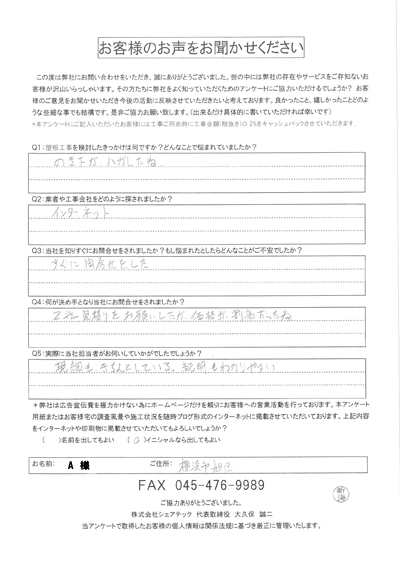 お客様のお声をお聞かせください
この度は弊社にお問い合わせをいただき、誠にありがとうございました。世の中には弊社の存在やサービスをご存知ないお
客様が沢山いらっしゃいます。その方たちに弊社をよく知っていただくためのアンケートにご協力いただけるでしょうか? お客
様のご意見をお聞かせいただき今後の活動に反映させていただきたいと考えております。良かったこと、嬉しかったことどのよ
うな些細な事でも結構です。是非ご協力お願い致します。(出来るだけ具体的に書いていただければ幸いです)
*本アンケートにご記入いただいたお客様には工事ご用命時に工事金額(税抜き)の2%をキャッシュバックさせていただきます。
Q1:屋根工事を検討したきっかけは何ですか?どんなことで悩まれていましたか?
のきさが、ハガレたね
Q2:業者や工事会社をどのように探されましたか?
インターネット
Q3:当社を知りすぐにお問合せをされましたか?もし悩まれたとしたらどんなことがご不安でしたか?
すぐに問合せをした
Q4:何が決め手となり当社にお問合せをされましたか?
2社見積りをお願いしたが、価格が割高だったね
Q5:実際に当社担当者がお伺いしていかがでしたでしょうか?
説明もわかりやすい
*弊社は広告宣伝費を極力かけない為にホームページだけを頼りにお客様への営業活動を行っております。本アンケート
用紙またはお客様宅の調査風景や施工状況を随時ブログ形式のインターネットに掲載させていただいております。上記内容
をインターネットや印刷物に掲載させていただいてもよろしいでしょうか?
( )名前を出してもよい (○)イニシャルなら出してもよい
お名前: A 様 ご住所: 横浜市旭区
FAX 045-476-9989
新海
ご協力ありがとうございました。
株式会社シェアテック 代表取締役 大久保 誠二
当アンケートで取得したお客様の個人情報は関係法規に基づき厳正に管理いたします。